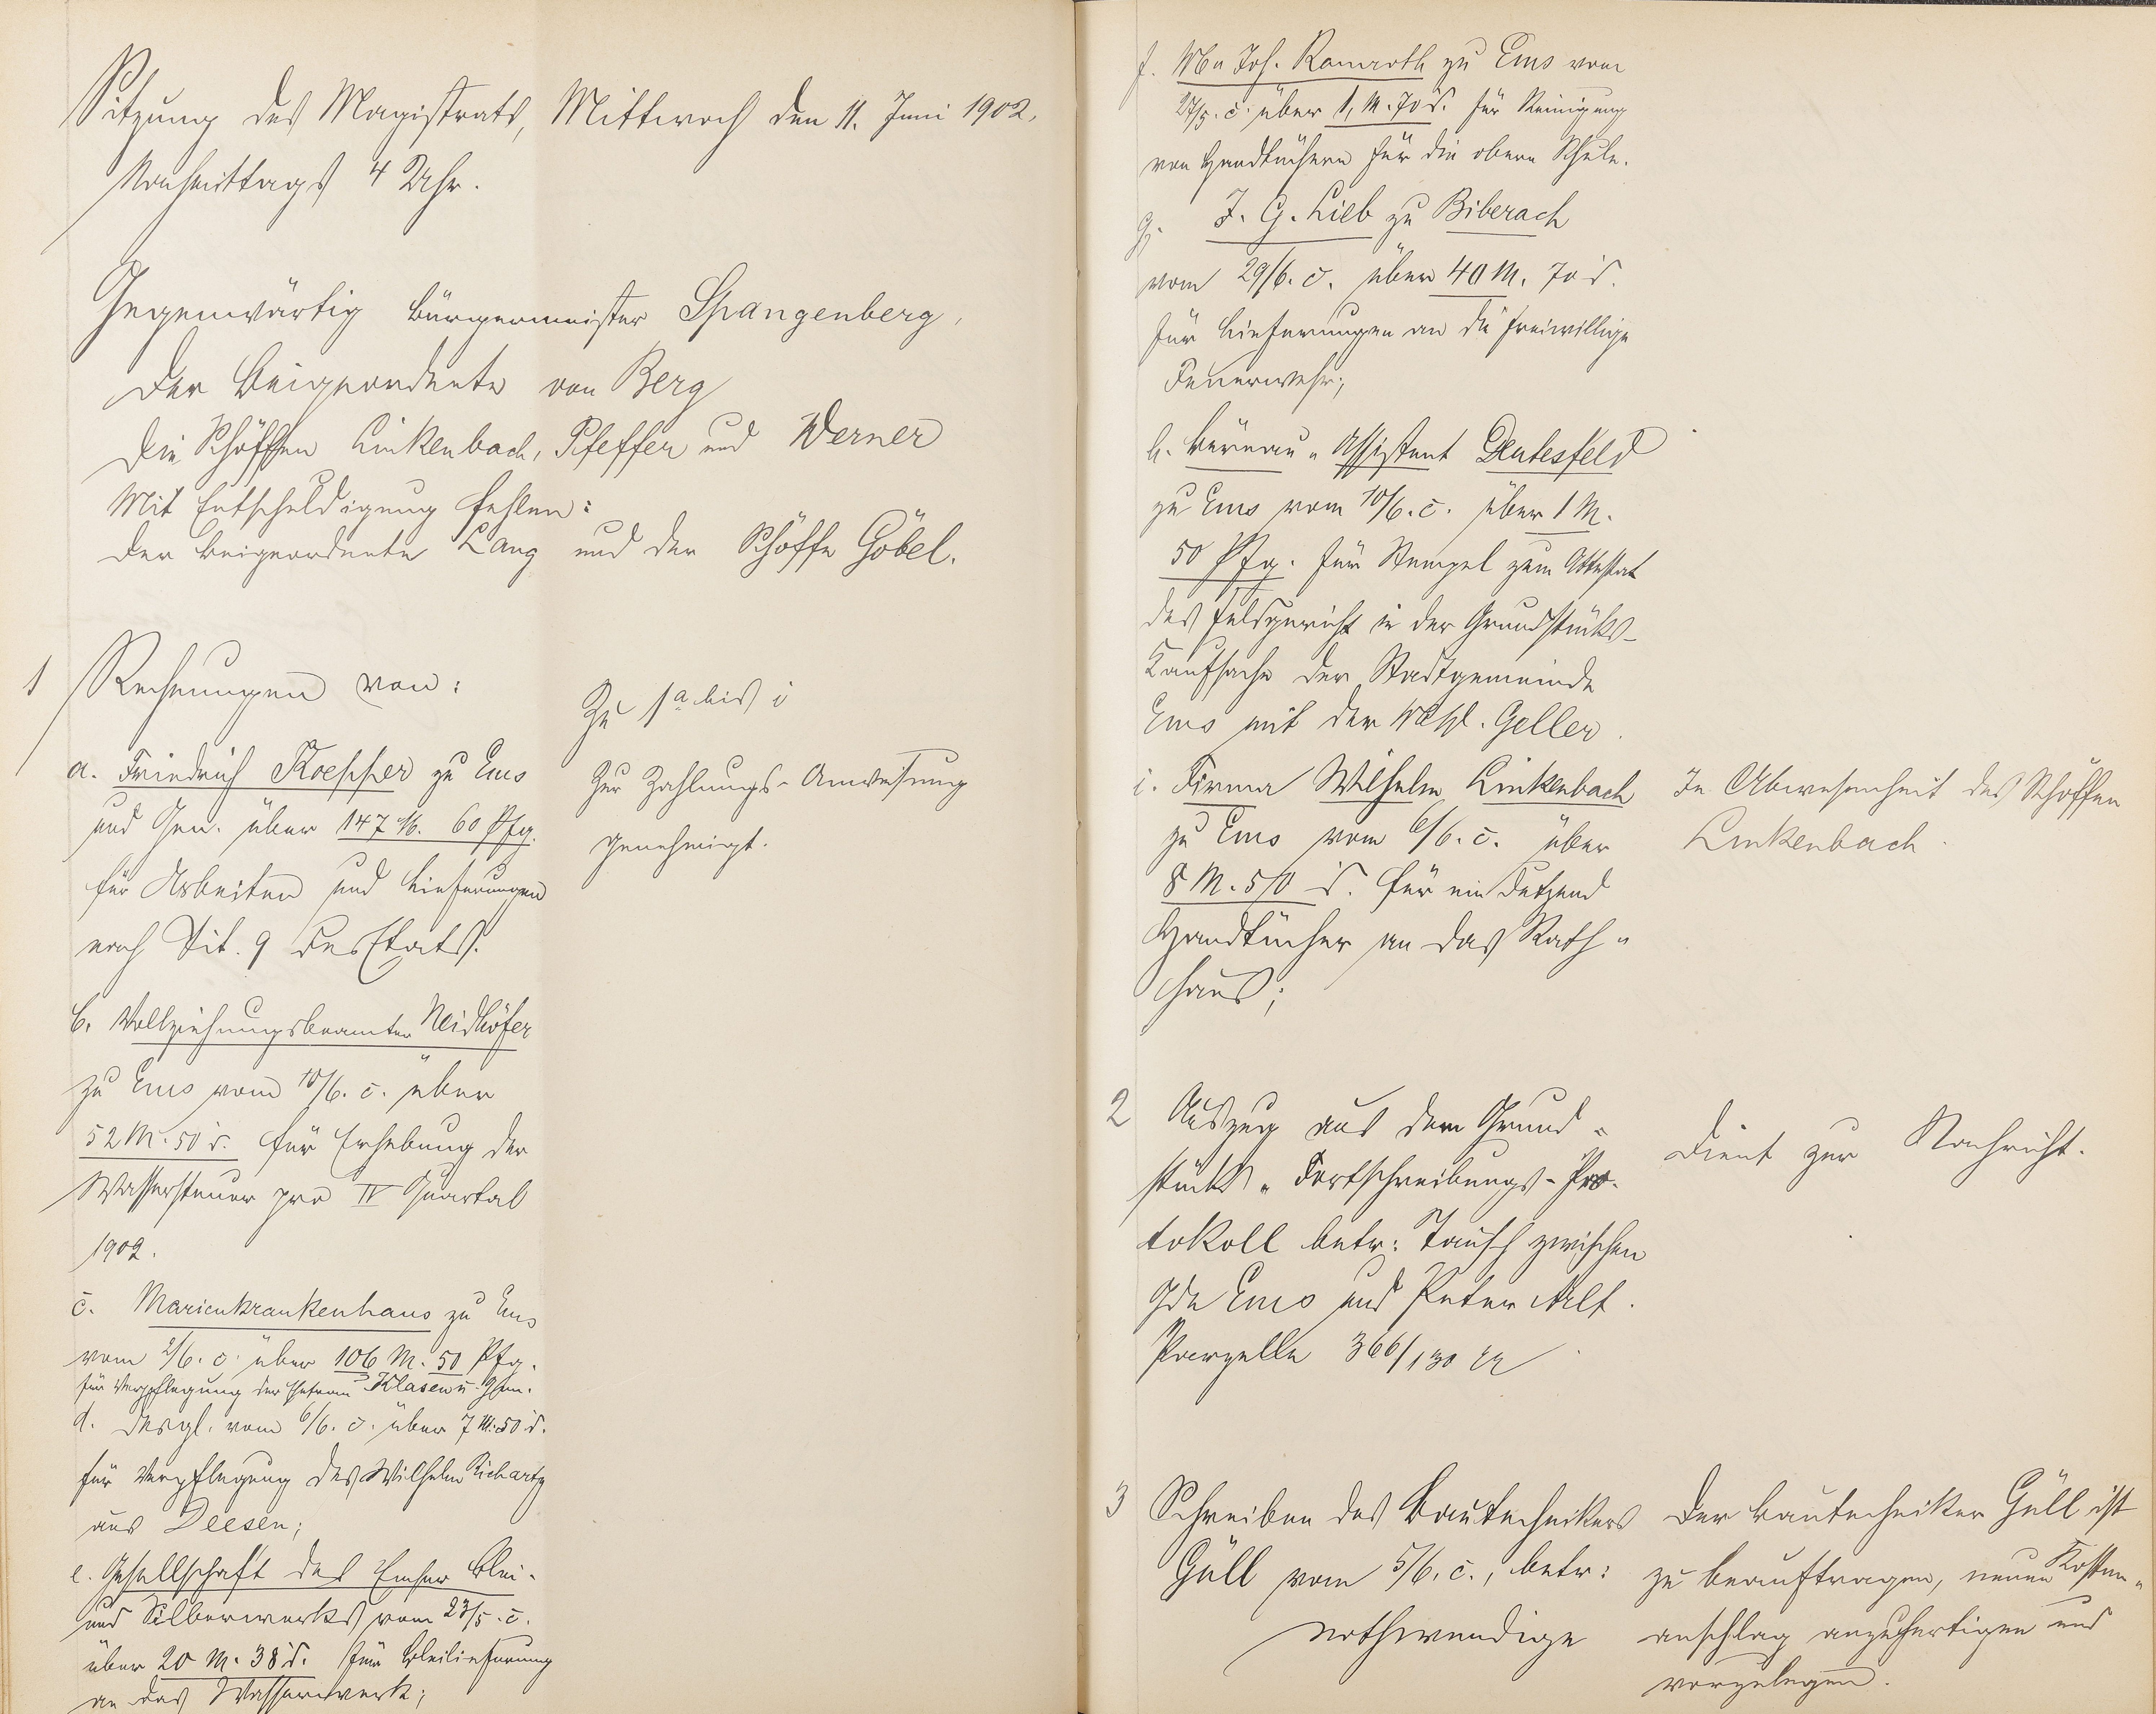 Sitzung des Magistrats, Mittwoch den 11. Juni 1902,
Nachmittags 4 Uhr.
Gegenwärtig Bürgermeister Spangenberg,
Der Beigeordnete von Berg
Die Schöffen Linkenbach, Pfeffer und Werner
Mit Entschuldigung fehlen:
Der Beigeordnete Lang und der Schöffe Göbel.
1 Rechnungen von:
a. Friedrich Koepper zu Ems
und Gen. über 147 M. 60 Pfg.
für Arbeiten und Lieferungen
nach Tit. 9 des Etats.
Zu 1a bis i
Zur Zahlungs-Anweisung
genehmigt.
b. Vollziehungsbeamter Neidhöfer
zu Ems vom 10/6. c. über
52 M. 50 d. für Erhebung der
Wassersteuer pro IV Quartal
1902.
c. Marienkrankenhaus zu Ems
vom 2/6. c. über 106 M. 50 Pfg.
für Verpflegung der Ehefrau Klasen u. Gen.
d. desgl. vom 6/6. c. über 7 M. 50 d.
für Verpflegung des Wilhelm Richartz
aus Deesen;
e. Gesellschaft des Emser Blei-
und Silberwerks vom 23/5. c.
über 20 M. 38 d. für Bleilieferung
an das Wasserwerk;
f. Joh. Ramroth zu Ems vom
27/5. c. über 1, M. 70 d. für Reinigung
von Handtüchern für die obere Schule.
g. J. G. Lieb zu Biberach
vom 29/6. c. über 40 M. 70 d.
für Lieferungen an die freiwillige
Feuerwehr;
h. Büreau-Assistent Deutesfeld
zu Ems vom 10/6. c. über 1 M.
50 Pfg. für Stempel zum Attestat
des Feldgericht in der Grundstücks-
Kaufsache der Stadtgemeinde
Ems mit der Geller.
i. Firma Wilhelm Linkenbach
zu Ems vom 6/6. c. über
8 M. 50 d. für ein Dutzend
Handtücher an das Rath-
haus;
In Abwesenheit des Schöffen
Linkenbach.
2 Auszug aus dem Grund-
stücks-Fortschreibungs-Pro-
tokoll betr: Tausch zwischen
Gde Ems und Peter Alf.
Parzelle 366/130
Dient zur Nachricht.
3 Schreiben des Bautechnikers
Güll vom 5/6. c., betr:
nothwendige
Der Bautechniker Güll ist
zu beauftragen, neuen Kosten-
anschlag anzufertigen und
vorzulegen.